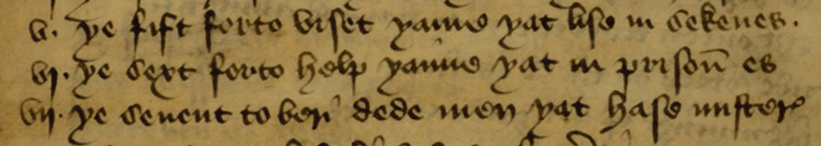 v. ye fift forto viset yame yat lise in sekenes.
vj. ye sext forto help yame yat in prison es
vij. ye seuent to beri dede men yat hase mister